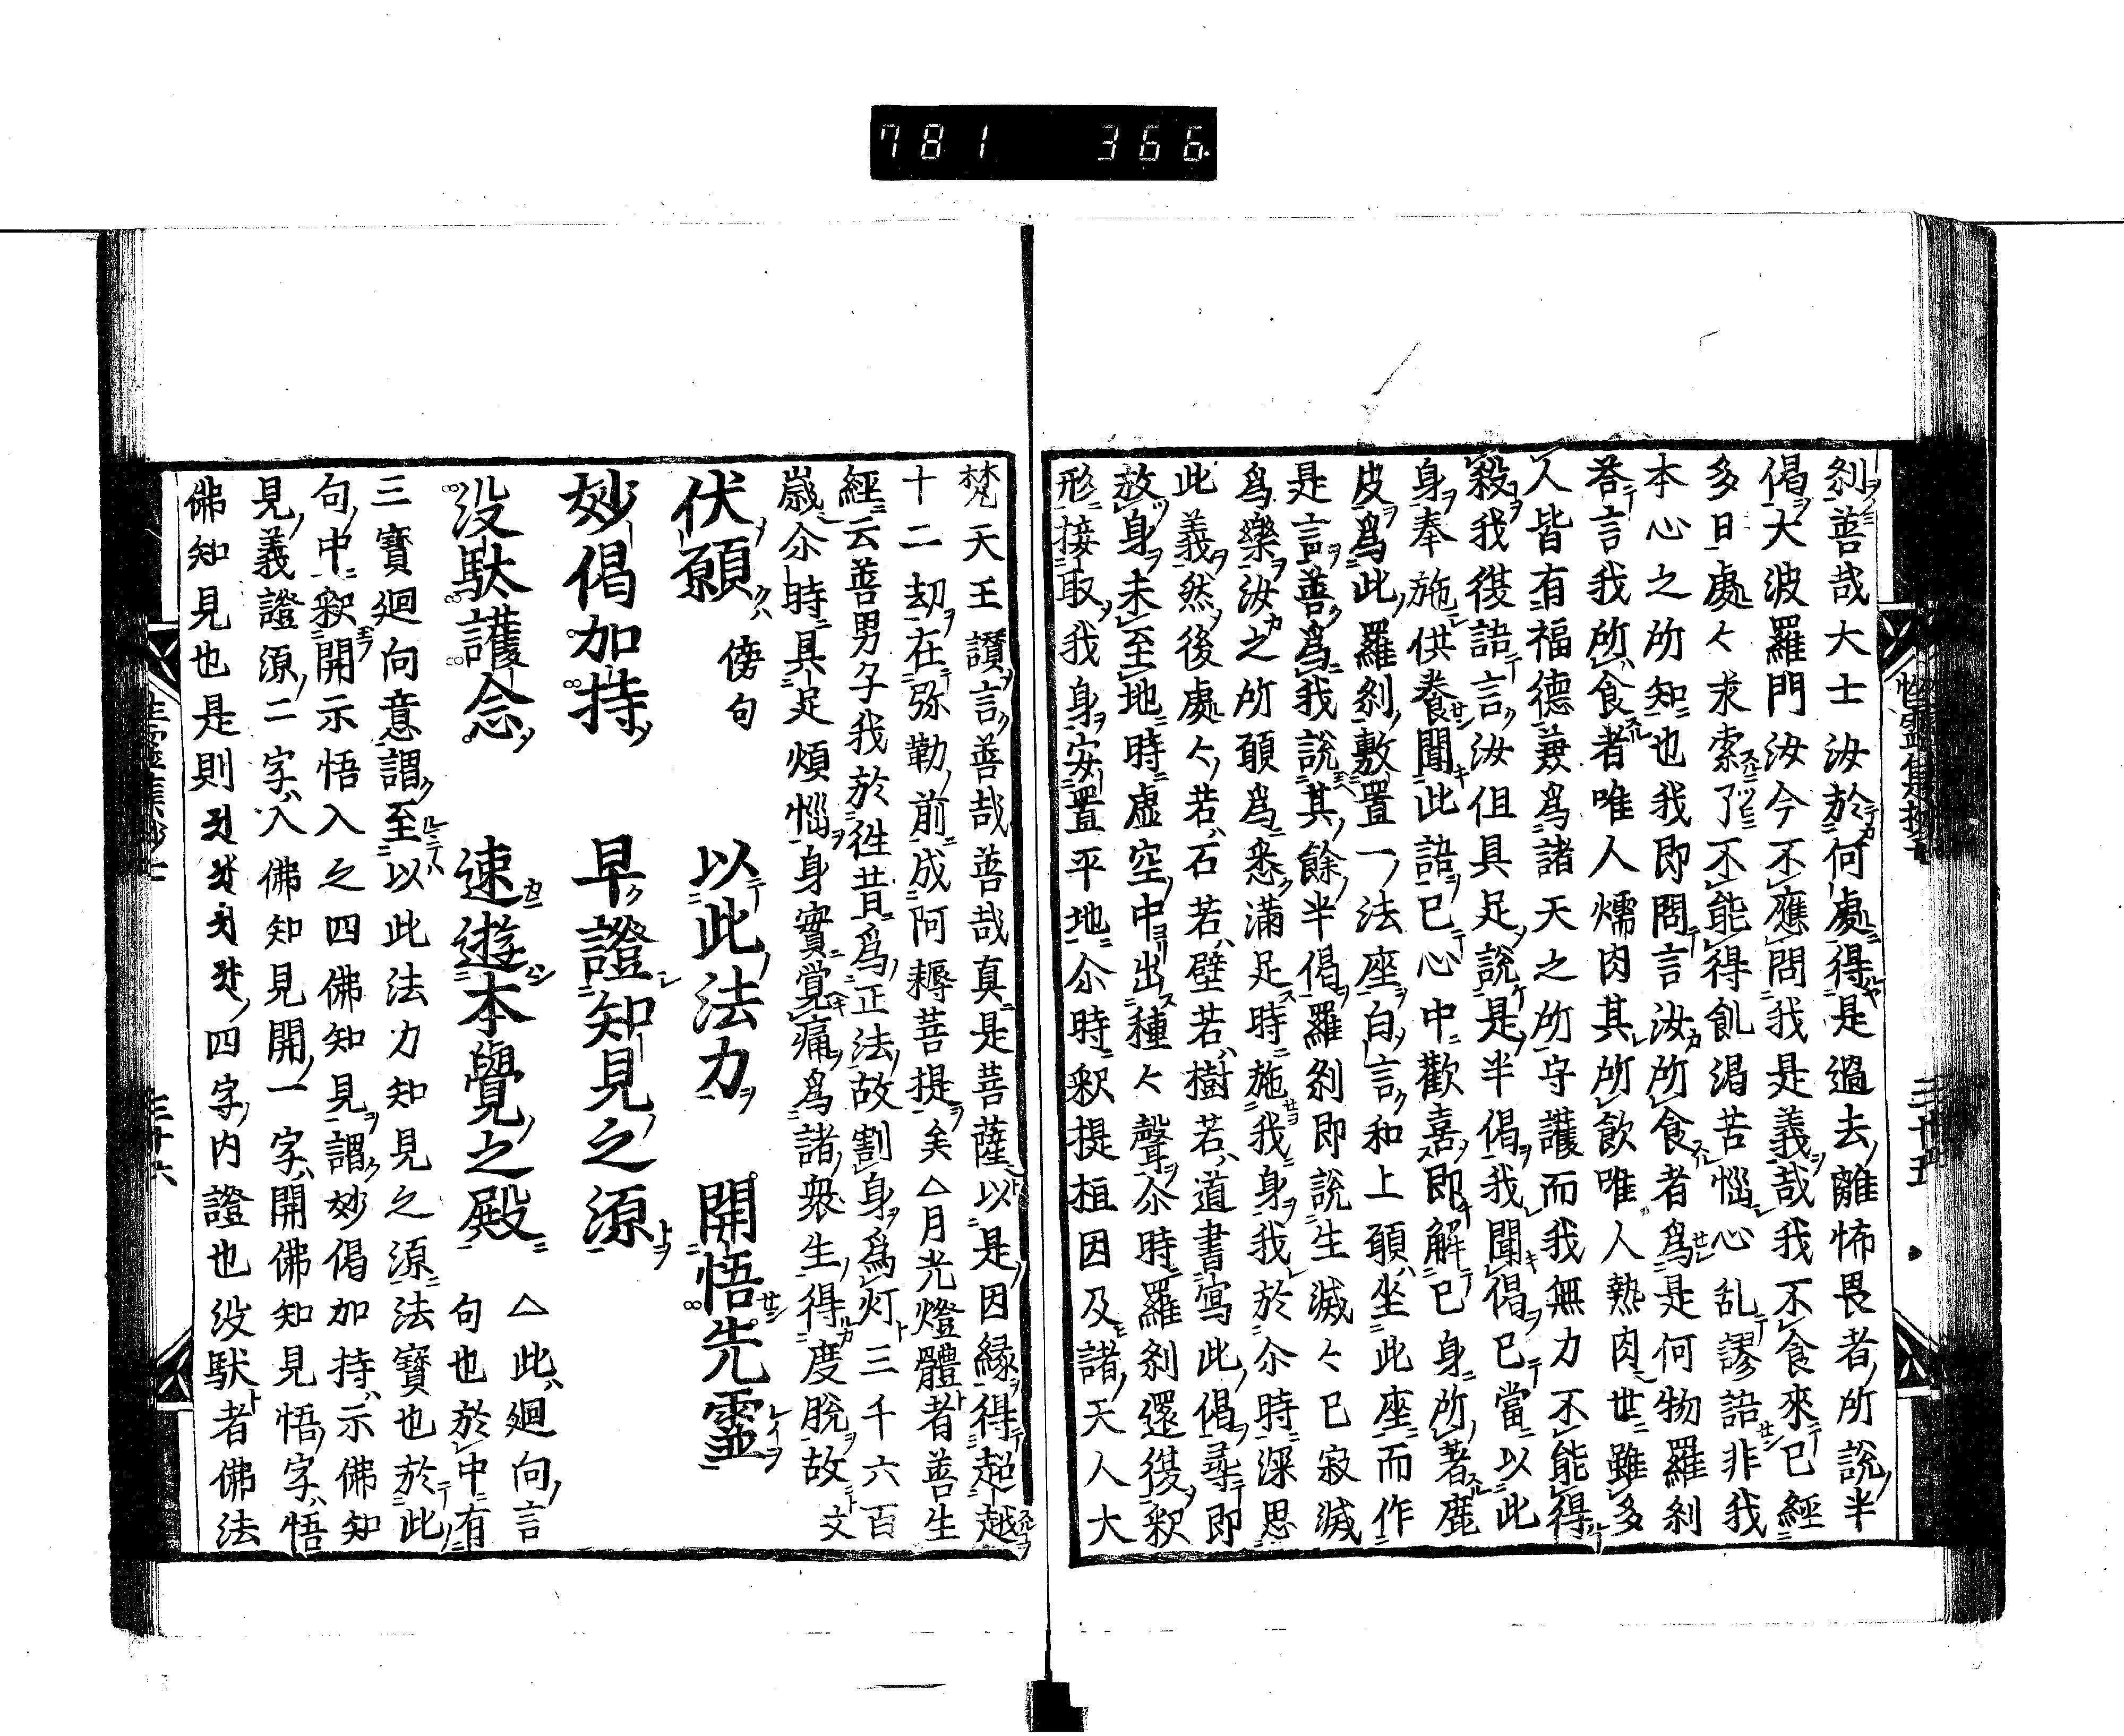 781 366.
刹善哉大士汝於何處得是過去離怖畏者所説半
偈大波羅門汝今不應問我是義哉我不食來已經
多日處々求索了不能得飢渇苦惱心乱謬語非我
本心之所知也我即問言汝所食者爲是何物羅刹
荅言我所食者唯人燸肉其所飲唯人熱肉世雖多
人皆有福德兼爲諸天之所守護而我無力不能得
殺我復語言汝但具足說是半偈我聞偈已當以此
身奉施供養聞此語已心中歡喜即解已身所著鹿
皮爲此羅刹敷置一法座白言和上願坐此座而作
是言善爲我說其餘半偈羅刹即説生滅々已寂滅
爲樂汝之所願爲悉滿足時施我身我於尒時深思
此義然後處々若石若壁若樹若道書寫此偈尋即
放身未至地時虚空中出種々聲尒時羅刹還復釈
形接取我身安置平地尒時釈提桓因及諸天人大
梵天王讃言善哉善哉真是菩薩以是因縁得超越
十二劫在弥勒前成阿耨菩提矣△月光燈體者善生
經云善男子我於徃昔爲正法故割身爲灯三千六百
嵗尒時具足煩惱身實覚痛爲諸衆生得度脫故文
伏願 傍句 以此法力 開悟先靈
妙偈加持 早證知見之源
没馱護念 速遊本覺之殿 △此廻向言
句也於中有
三寶廻向意謂至以此法力知見之源法寶也於此
句中釈開示悟入之四佛知見謂妙偈加持示佛知
見義證源二字入佛知見開一字開佛知見悟字悟
佛知見也是則四字内證也没馱者佛法
三十五
三十六